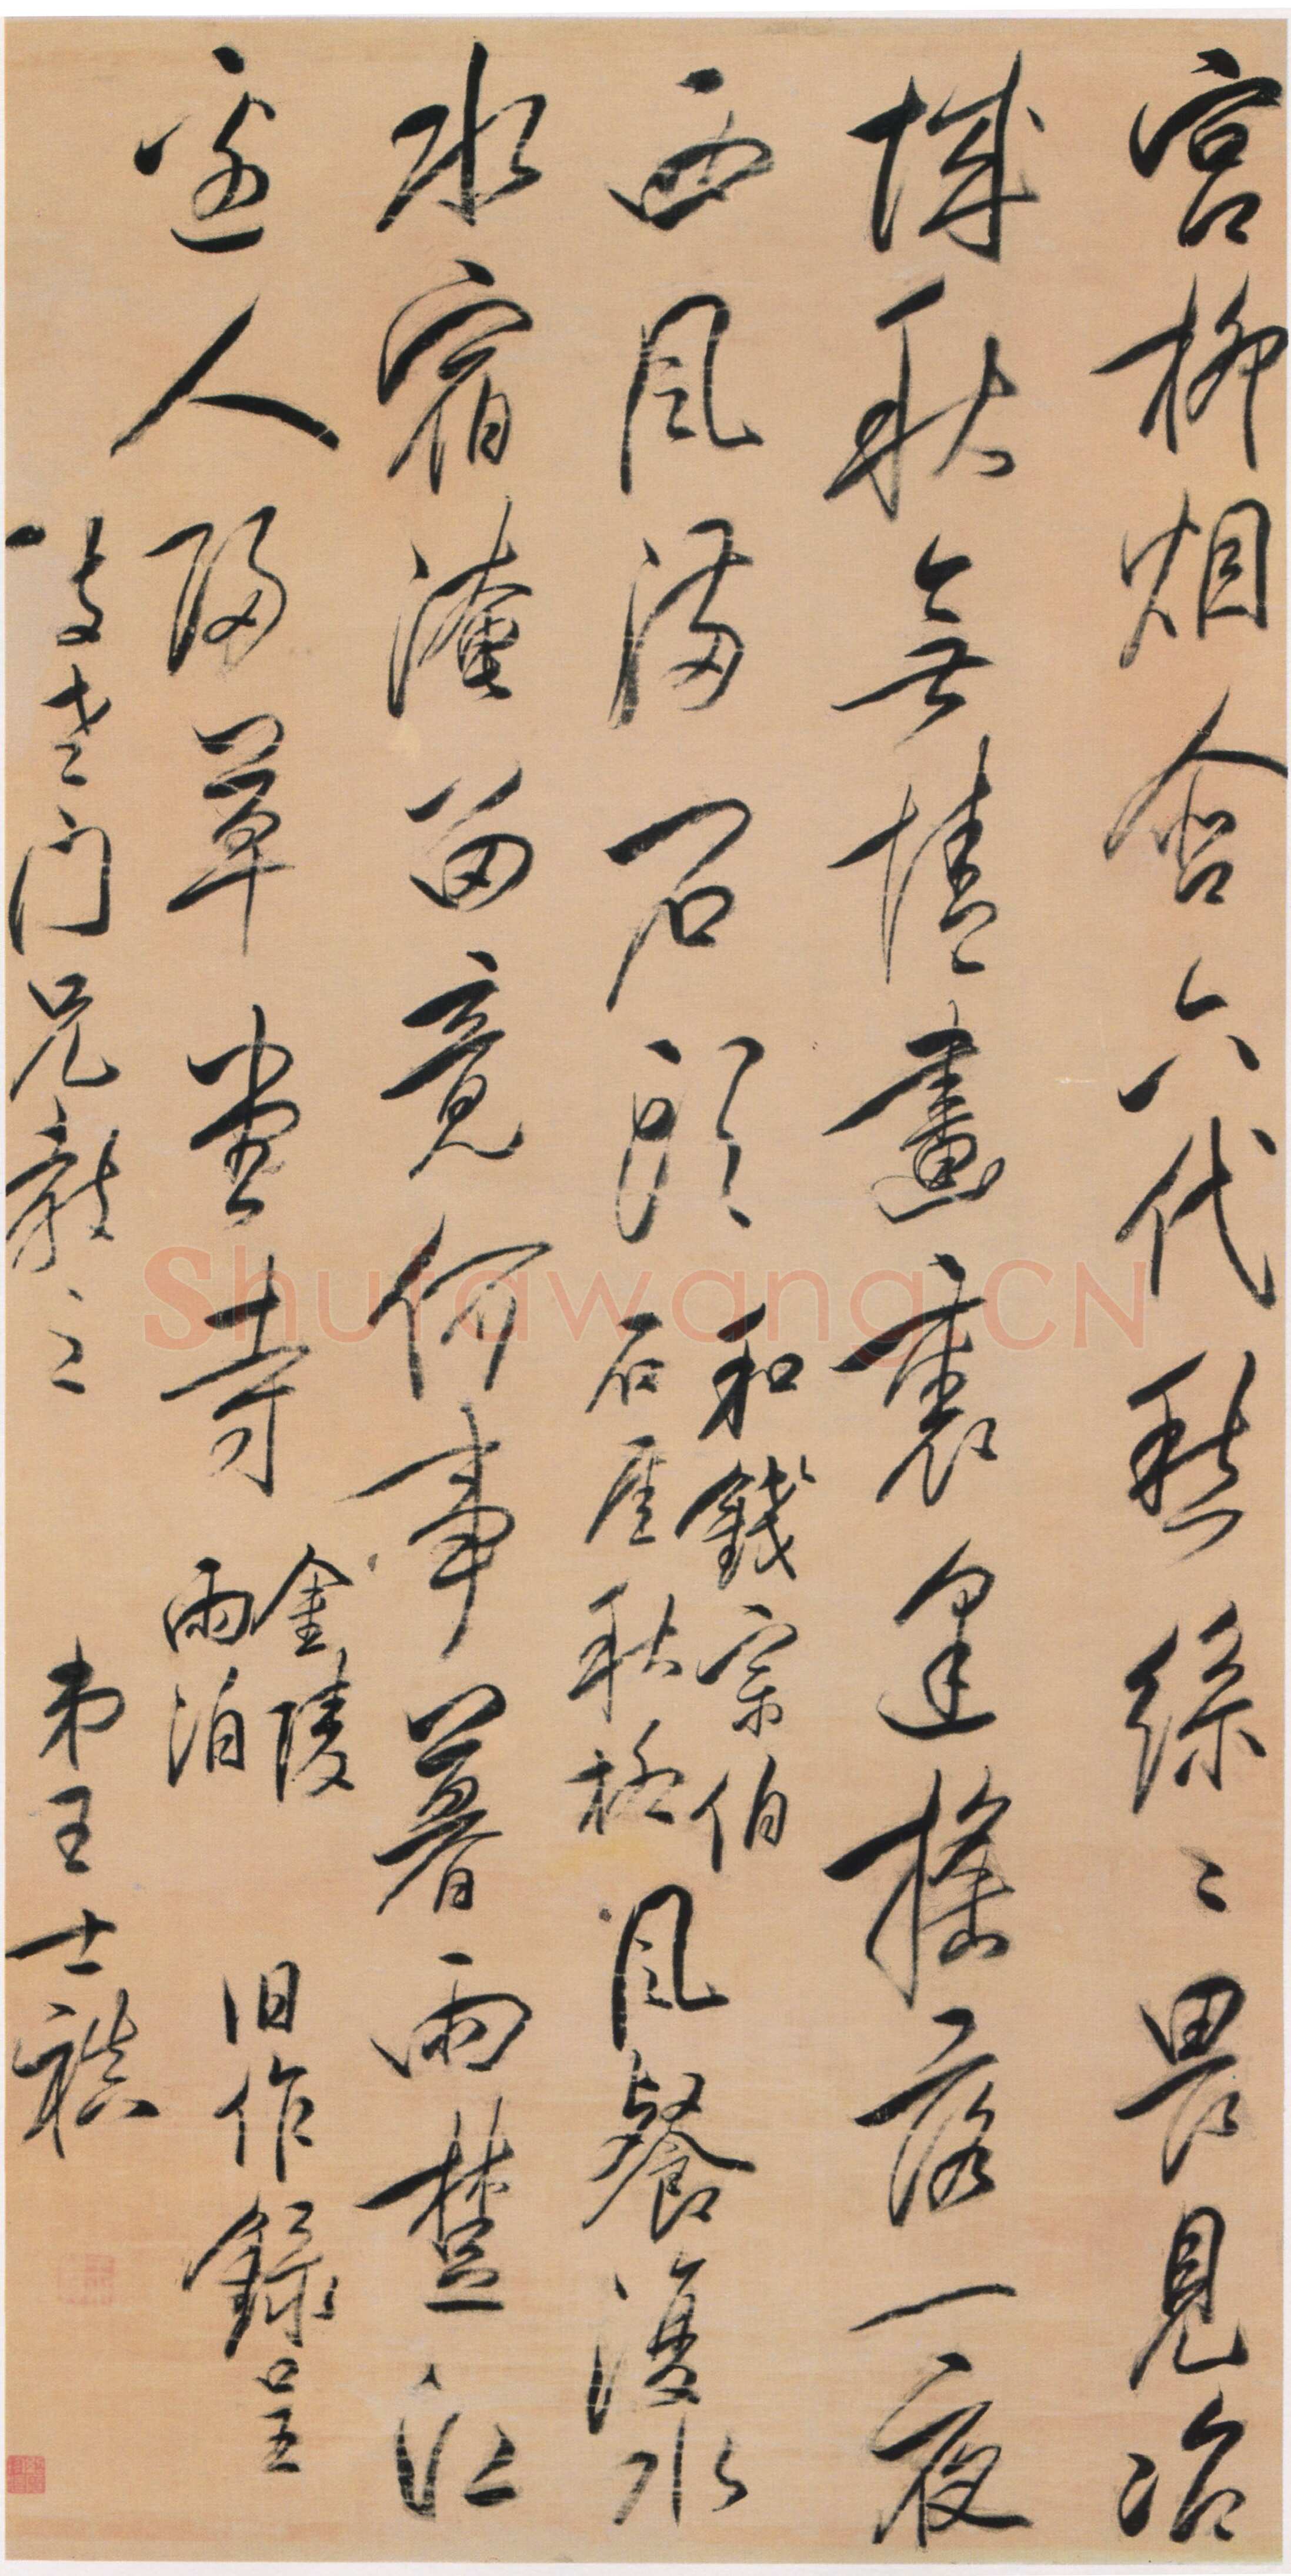 宮柳烟含六代愁絲〻畏見冶
城秋無情畫裏逢搖落一夜
西風滿石頭
和錢宗伯
石崖秋柳
風餐復水
水宿淹留竟何事暮雨楚江
邊人歸草堂寺
金陵
雨泊
旧作錄呈
老門兄教之
弟王士禛
Shufawang.CN